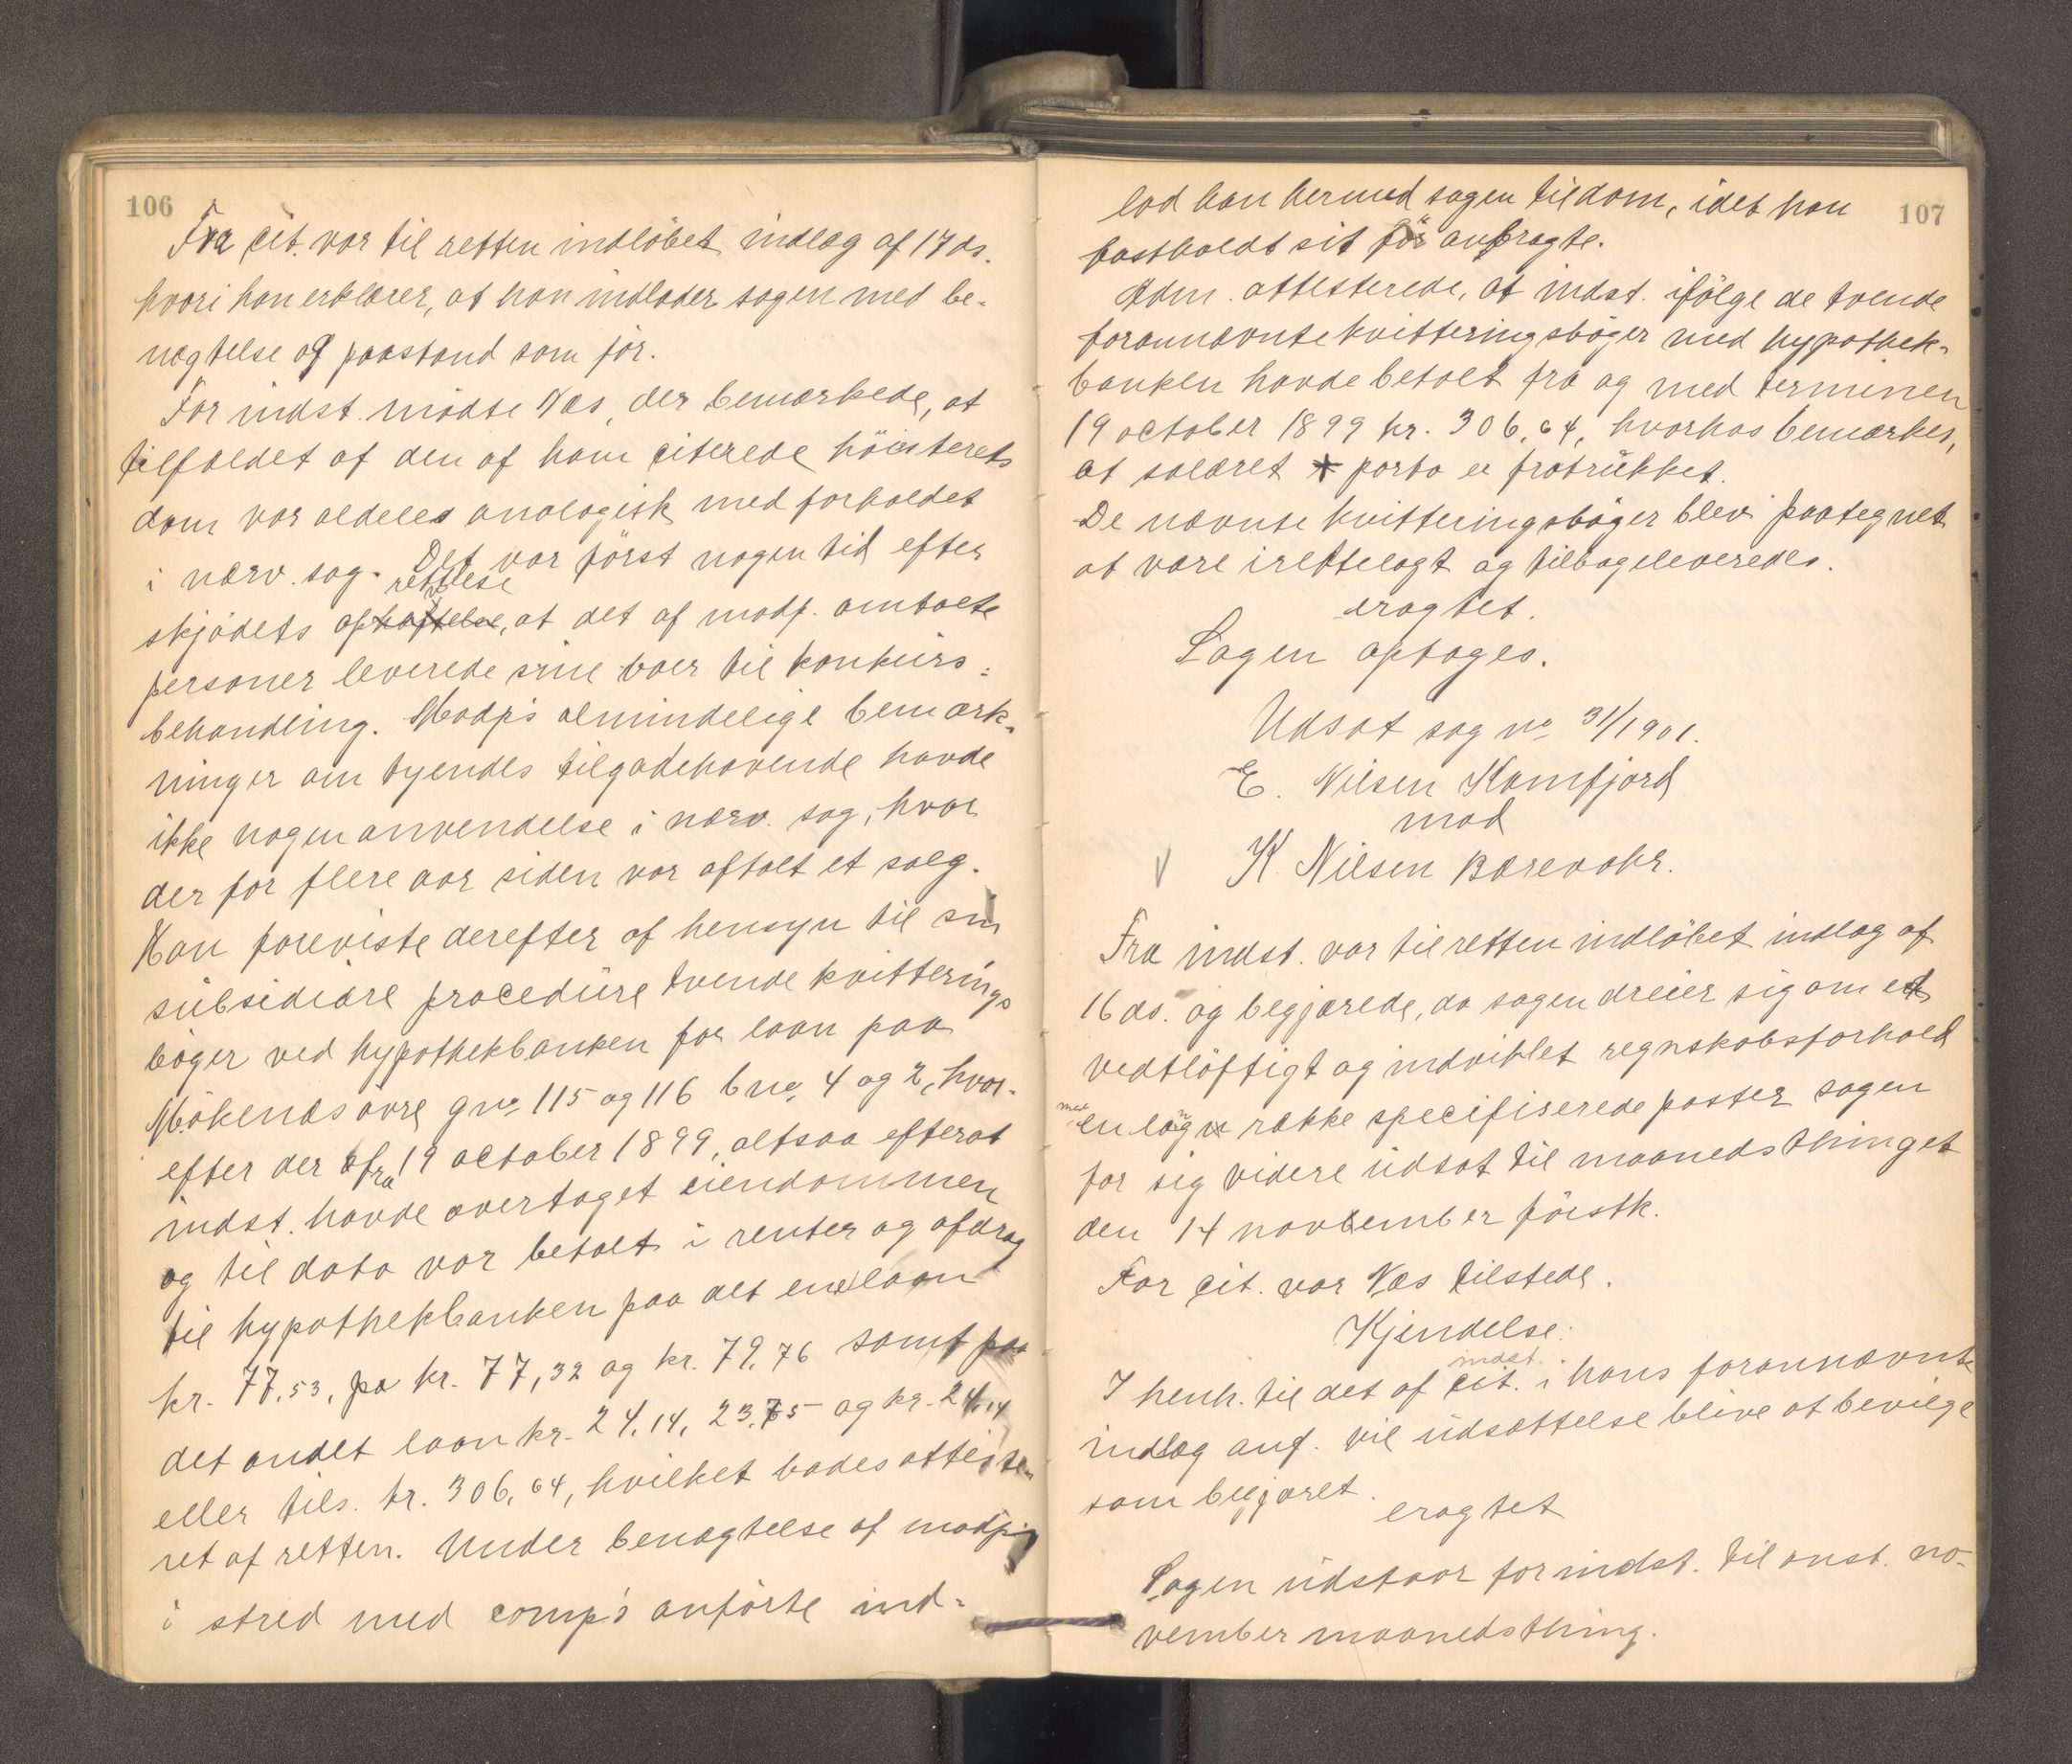 106
Fra cit. var til retten indløbet indlæg af 17 ds.
hvori han erklærer, at han indlader sagen med be-
nægtelse og paastand som før.
For indst. mødte Næs, der bemærkede, at
tilfældet af den af ham citerede høiesterets
dom var aldeles analogisk med forholdet
i nærv. sag. Det var først nogen tid efter
rettelse
skjødets ophæftelse, at det af modp. omtalte
personer leverede sine boer til konkurs-
behandling. Modp's almindelige bemærk-
ninger om tyendes tilgodehavende havde
ikke nogen anvendelse i nærv. sag, hvor
der for flere aar siden var aftalt et salg.
Han foreviste derefter af hensyn til sin
subsidiære procedüre tvende kvitterings
bøger ved hypothekbanken for laan paa
Mökenæs øvre gno 115 og 116 bno 4 og 2, hvor-
efter der fra 19 october 1899, altsaa efterat
indst. havde overtaget eiendommen
og til dato var betalt i renter og afdrag
til hypothekbanken paa det ene laan
kr. 77,53, pa kr. 77,32 og kr. 79,76 samt paa
det andet laan kr. 24,14, 23,75 og kr. 24,14
eller tils. kr. 306,64, hvilket bades atteste-
ret af retten. Under benægtelse af modp's
i stred med comp's anførte ind-
107
lod han hermed sagen til dom, idet han
fastholdt sit før anbragte.
Adm. attesterede, at indst. ifølge de tvende
forannævnte kvitteringsbøger med hypothek-
banken havde betalt fra og med terminen
19 october 1899 kr. 306,64, hvorhos bemærkes,
at salæret + porto er fratrukket.
De nævnte kvitteringsbøger blev paategnet
at være irettelagt og tilbageleveredes.
eragtet.
Sagen optages.
Udsat sag no 31/1901.
E. Nilsen Kamfjord
mod
K. Nilsen Bærevahr.
Fra indst. var til retten indløbet indlæg af
16 ds. og begjærede, da sagen dreier sig om et
vidtløftigt og indviklet regnskabsforhold
med
en lang række specifiserede poster sagen
for sig videre udsat til maanedsthinget
den 14 november førstk.
For cit. var Næs tilstede.
Kjendelse:
indst.
I henh. til det af cit. i hans forannævnte
indlæg anf. vil udsættelse blive at bevilge
som begjæret.
eragtet
Sagen udstaar for indst. til anst. no-
vember maanedsthing.